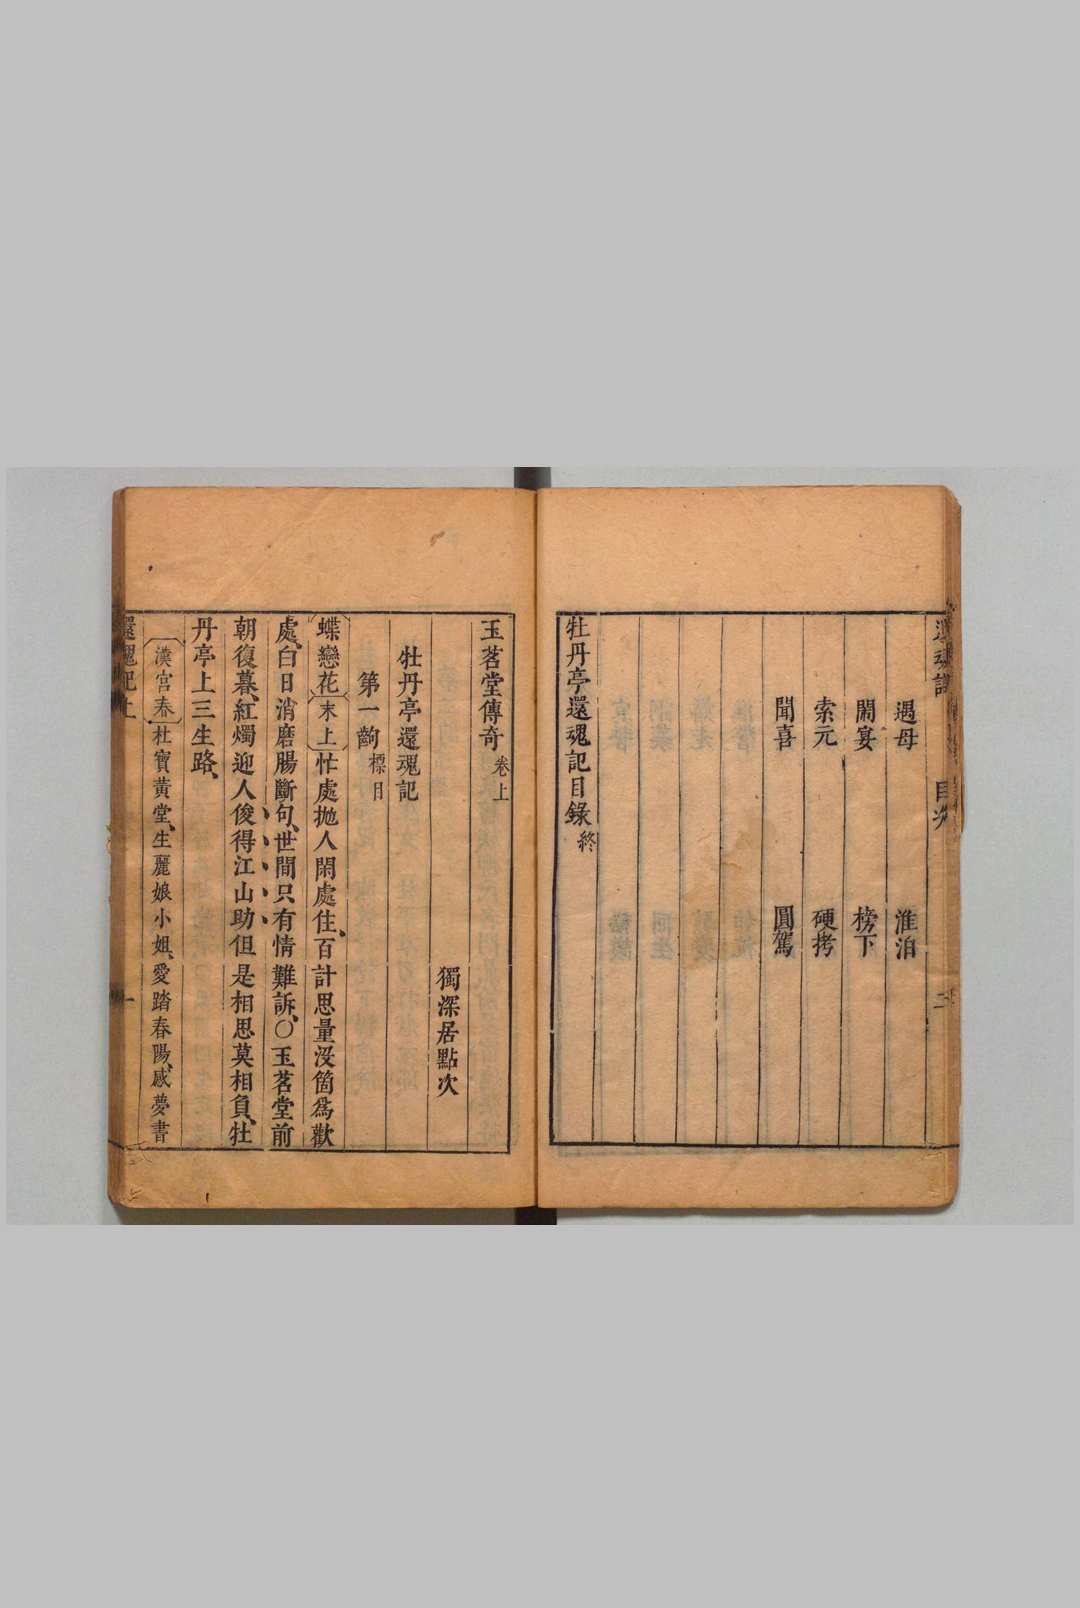 遇母 淮泊
閙宴 榜下
索元 硬拷
聞喜 圓駕
牡丹亭還魂記目錄終
目次
二
玉茗堂傳奇卷上
獨深居點次
牡丹亭還魂記
第一齣標目
蝶戀花末上忙處抛人閑處住、百計思量没箇爲歡
處、白日消磨腸斷句、世間只有情難訴、○玉茗堂前
朝復暮、紅燭迎人俊得江山助但是相思莫相負、牡
丹亭上三生路、
漢宫春杜寶黃堂、生麗娘小姐、愛踏春陽、感夢書
還魂記上
一